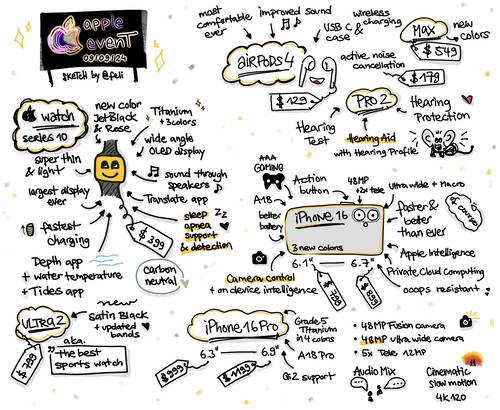 apple
evenT
09/09/24
SKETCH by @feli
most
comfortable
ever
improved sound
USB C &
case
wireless
charging
MAX
new
colors
$549
airPODS 4
$129
active noise
cancellation
$179
PRO 2
Hearing
Test
Hearing Aid
with Hearing Profile
Hearing
Protection
watch
series 10
new color
Jet Black
& Rose
Titanium
+3 colors
wide angle
OLED display
super thin
& light
sound through
speakers
largest display
ever
Translate app
fastest
charging
$399
sleep
apnea
support
& detection
zz
Depth app
+ water temperature
+ Tides app
carbon
neutral
AAA
GAMING
Action
button
48MP
+2x Tele
Ultra wide + Macro
A18
better
battery
iPhone 16
3 new colors
faster &
better
than ever
4 colours
6.1"
6.7"
$799
$899
Apple Intelligence
Private Cloud Computing
ooops resistant
Camera control
+ on device intelligence
ULTRA 2
$799
new
Satin Black
+ updated
bands
aka.
"the best
sports watch
iPhone 16 Pro
6.3"
6.9"
$999
$1199
Grade 5
Titanium
in 4 colors
A18 Pro
Qi2 support
• 48MP Fusion camera
• 48MP ultra wide camera
• 5x Tele 12MP
Audio Mix
Cinematic
slow motion
4k120